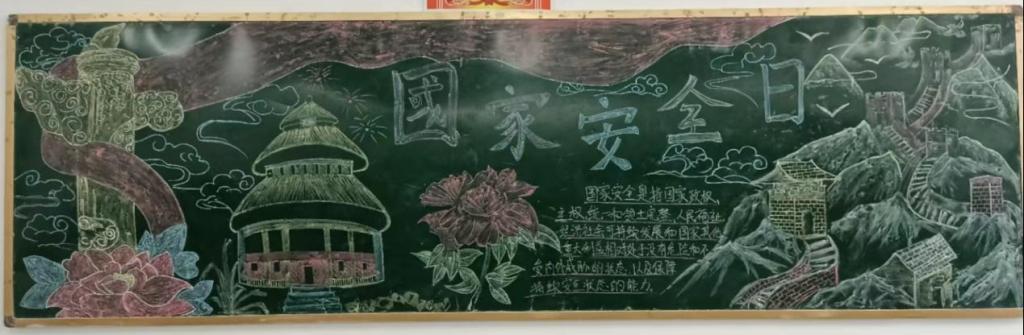 國家安全日
国家安全是指国家政权、
主权、统一和领土完整、人民福祉、
经济社会可持续发展和国家其他
重大利益相对处于没有危险和不
受内外威胁的状态，以及保障
持续安全状态的能力。